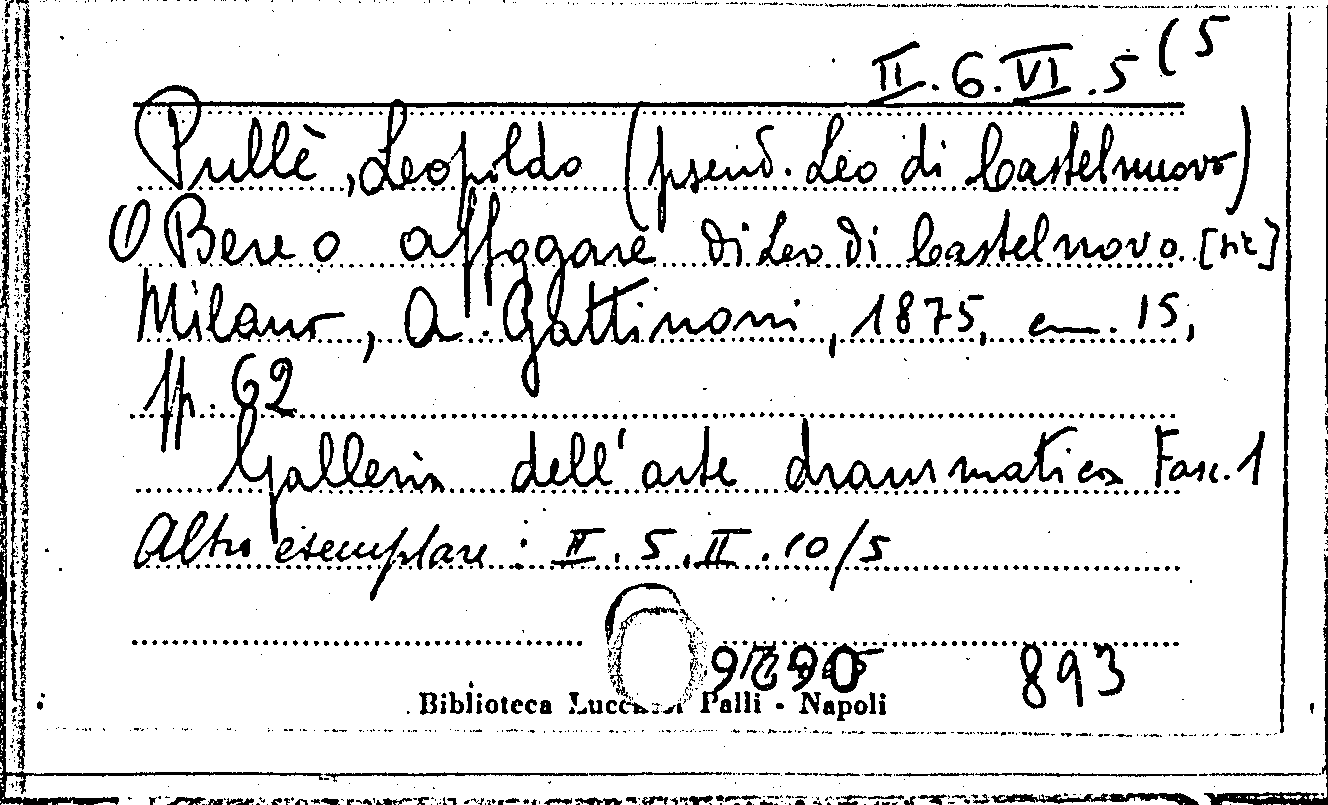 II.6.VI.5(5
Pullè, Leopoldo (pseud. Leo di Castelnuovo)
O Bere o affogare di Leo di Castelnovo. [sic]
Milano, A. Gattinoni, 1875, cm. 15,
pp. 62
Galleria dell'arte drammatica Fasc. 1
Altro esemplare: II.5.II.10/5
893
Biblioteca Lucchesi Palli - Napoli